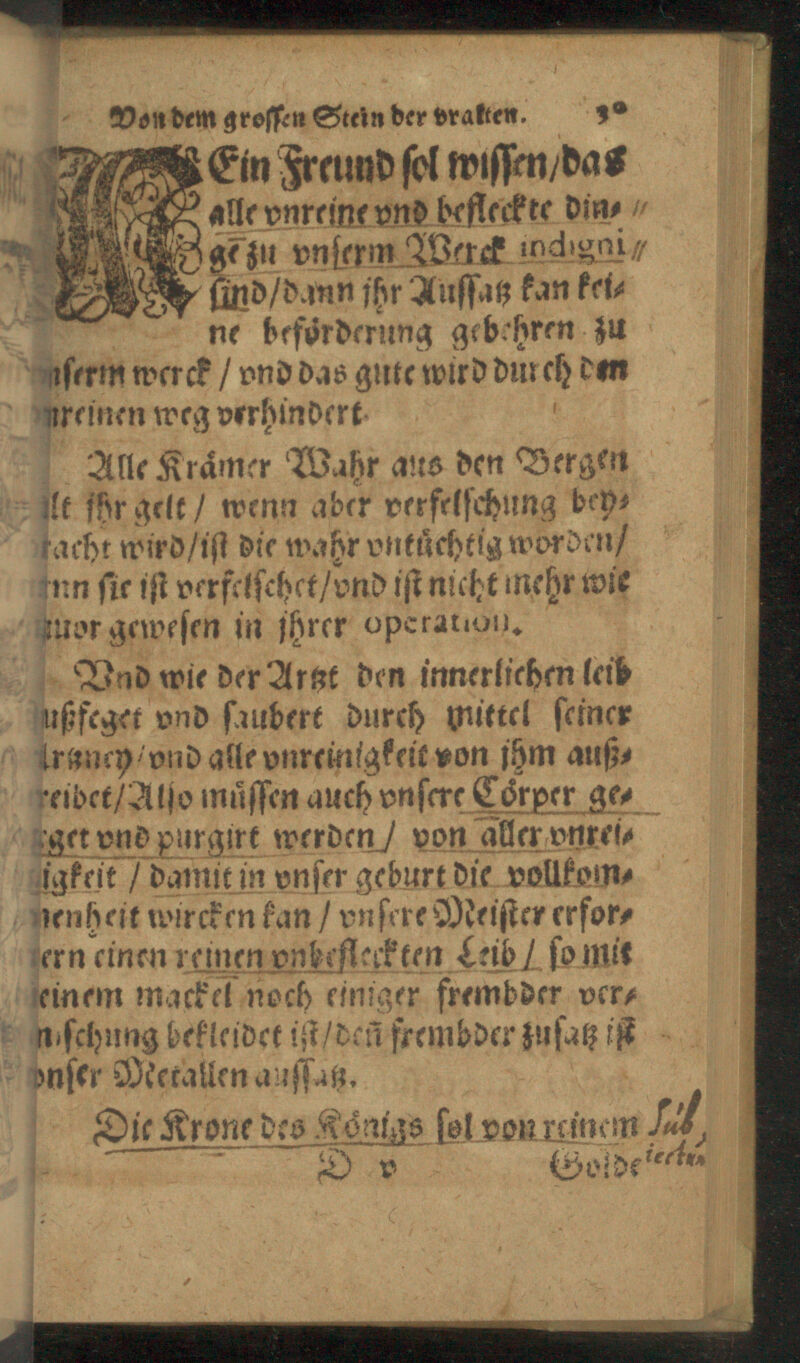 Von dem grossen Stein der vralten.
MEin Freund sol wissen/das
alle vnreine vnd befleckte din⸗
gē zu vnserm Werck indigni
sind/dann jhr Aussatz kan kei⸗
ne beförderung gebehren zu
nserm werck / vnd das gute wird durch den
nreinen weg verhindert
Alle Krämer Wahr aus den Bergen
ilt jhr gelt / wenn aber verfelschung bey⸗
racht wird/ist die wahr vntüchtig worden/
ann sie ist verfelschet/vnd ist nicht mehr wie
zuor gewesen in jhrer operation.
Vnd wie der Artzt den innerlichen leib
ußfeget vnd saubert durch mittel seiner
Artzney/vnd alle vnreinigkeit von jhm auß⸗
reibet/Also müssen auch vnsere Cörper ge⸗
get vnd purgirt werden/ von aller vnrei⸗
igkeit / damit in vnser geburt die vollkom⸗
nenheit wircken kan / vnsere Meister erfor⸗
ern einen reinen vnbefleckten Leib / so mit
keinem mackel noch einiger frembder ver⸗
mischung bekleidet ist/deñ frembder zusatz ist
vnser Metallen aussatz.
Die Krone des Königs sol von reinem Sub,
D v Golde iectum